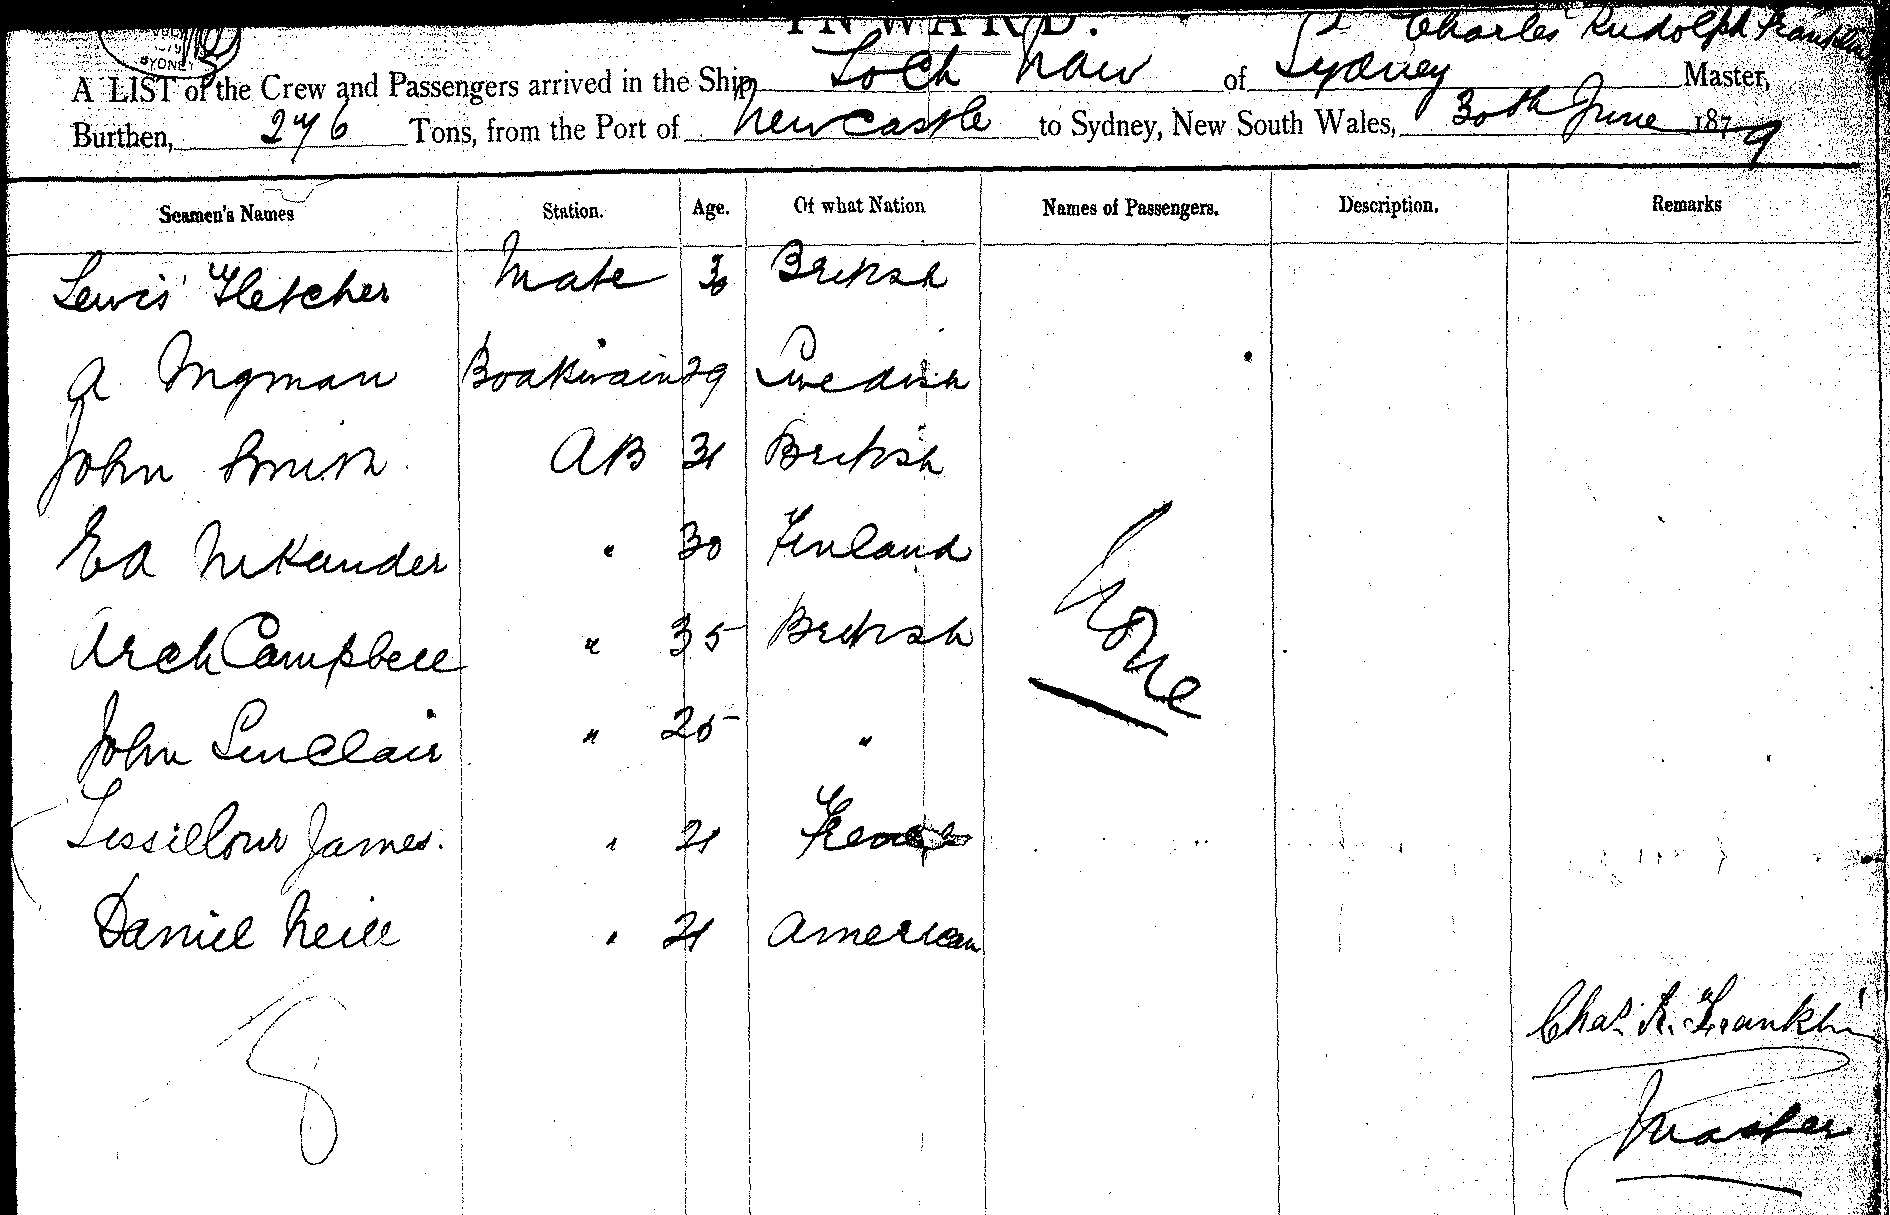 SYDNEY
INWARD.
Charles Rudolph Franklin
A LIST of the Crew and Passengers arrived in the Ship Loch Naw of Sydney Master,
Burthen, 276 Tons, from the Port of Newcastle to Sydney, New South Wales, 30th June 1879
Seamen's Names Station. Age. Of what Nation Names of Passengers. Description. Remarks
Lewis Fletcher Mate 30 British
A Ingman Boatswain 29 Swedish
John Smith AB 21 British
Ed Nikander " 30 Finland
Arch Campbell " 35 British
None
John Sinclair " 25 "
Lissillour James. " 21 French
Daniel Neill " 21 American
8
Chas. R. Franklin
Master